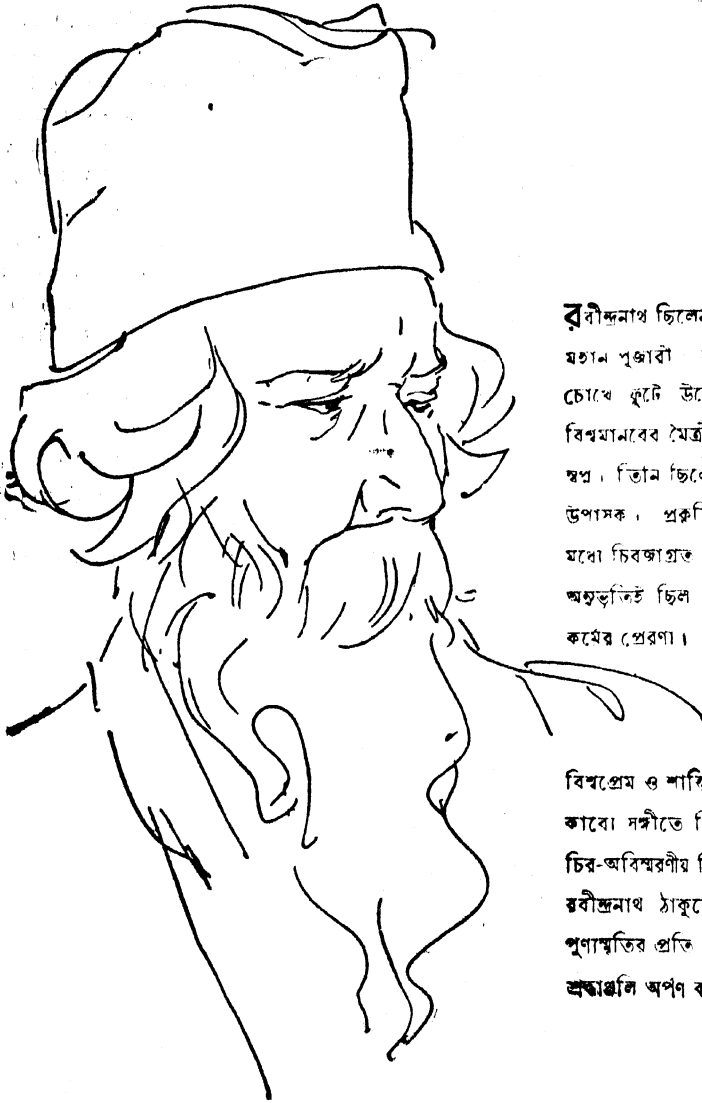 রবীন্দ্রনাথ ছিলেন
মহান পূজারী
চোখে ফুটে
বিশ্বমানবের মৈত্রী
স্বপ্ন। তিনি ছিলেন
উপাসক। প্রকৃতি
মধ্যে চিরজাগ্রত
অনুভূতিই ছিল
কর্মের প্রেরণা।
বিশ্বপ্রেম ও শান্তি
কাব্যে সঙ্গীতে
চির-অবিস্মরণীয়
রবীন্দ্রনাথ ঠাকুরে
পুণ্যস্মৃতির প্রতি
শ্রদ্ধাঞ্জলি অর্পণ